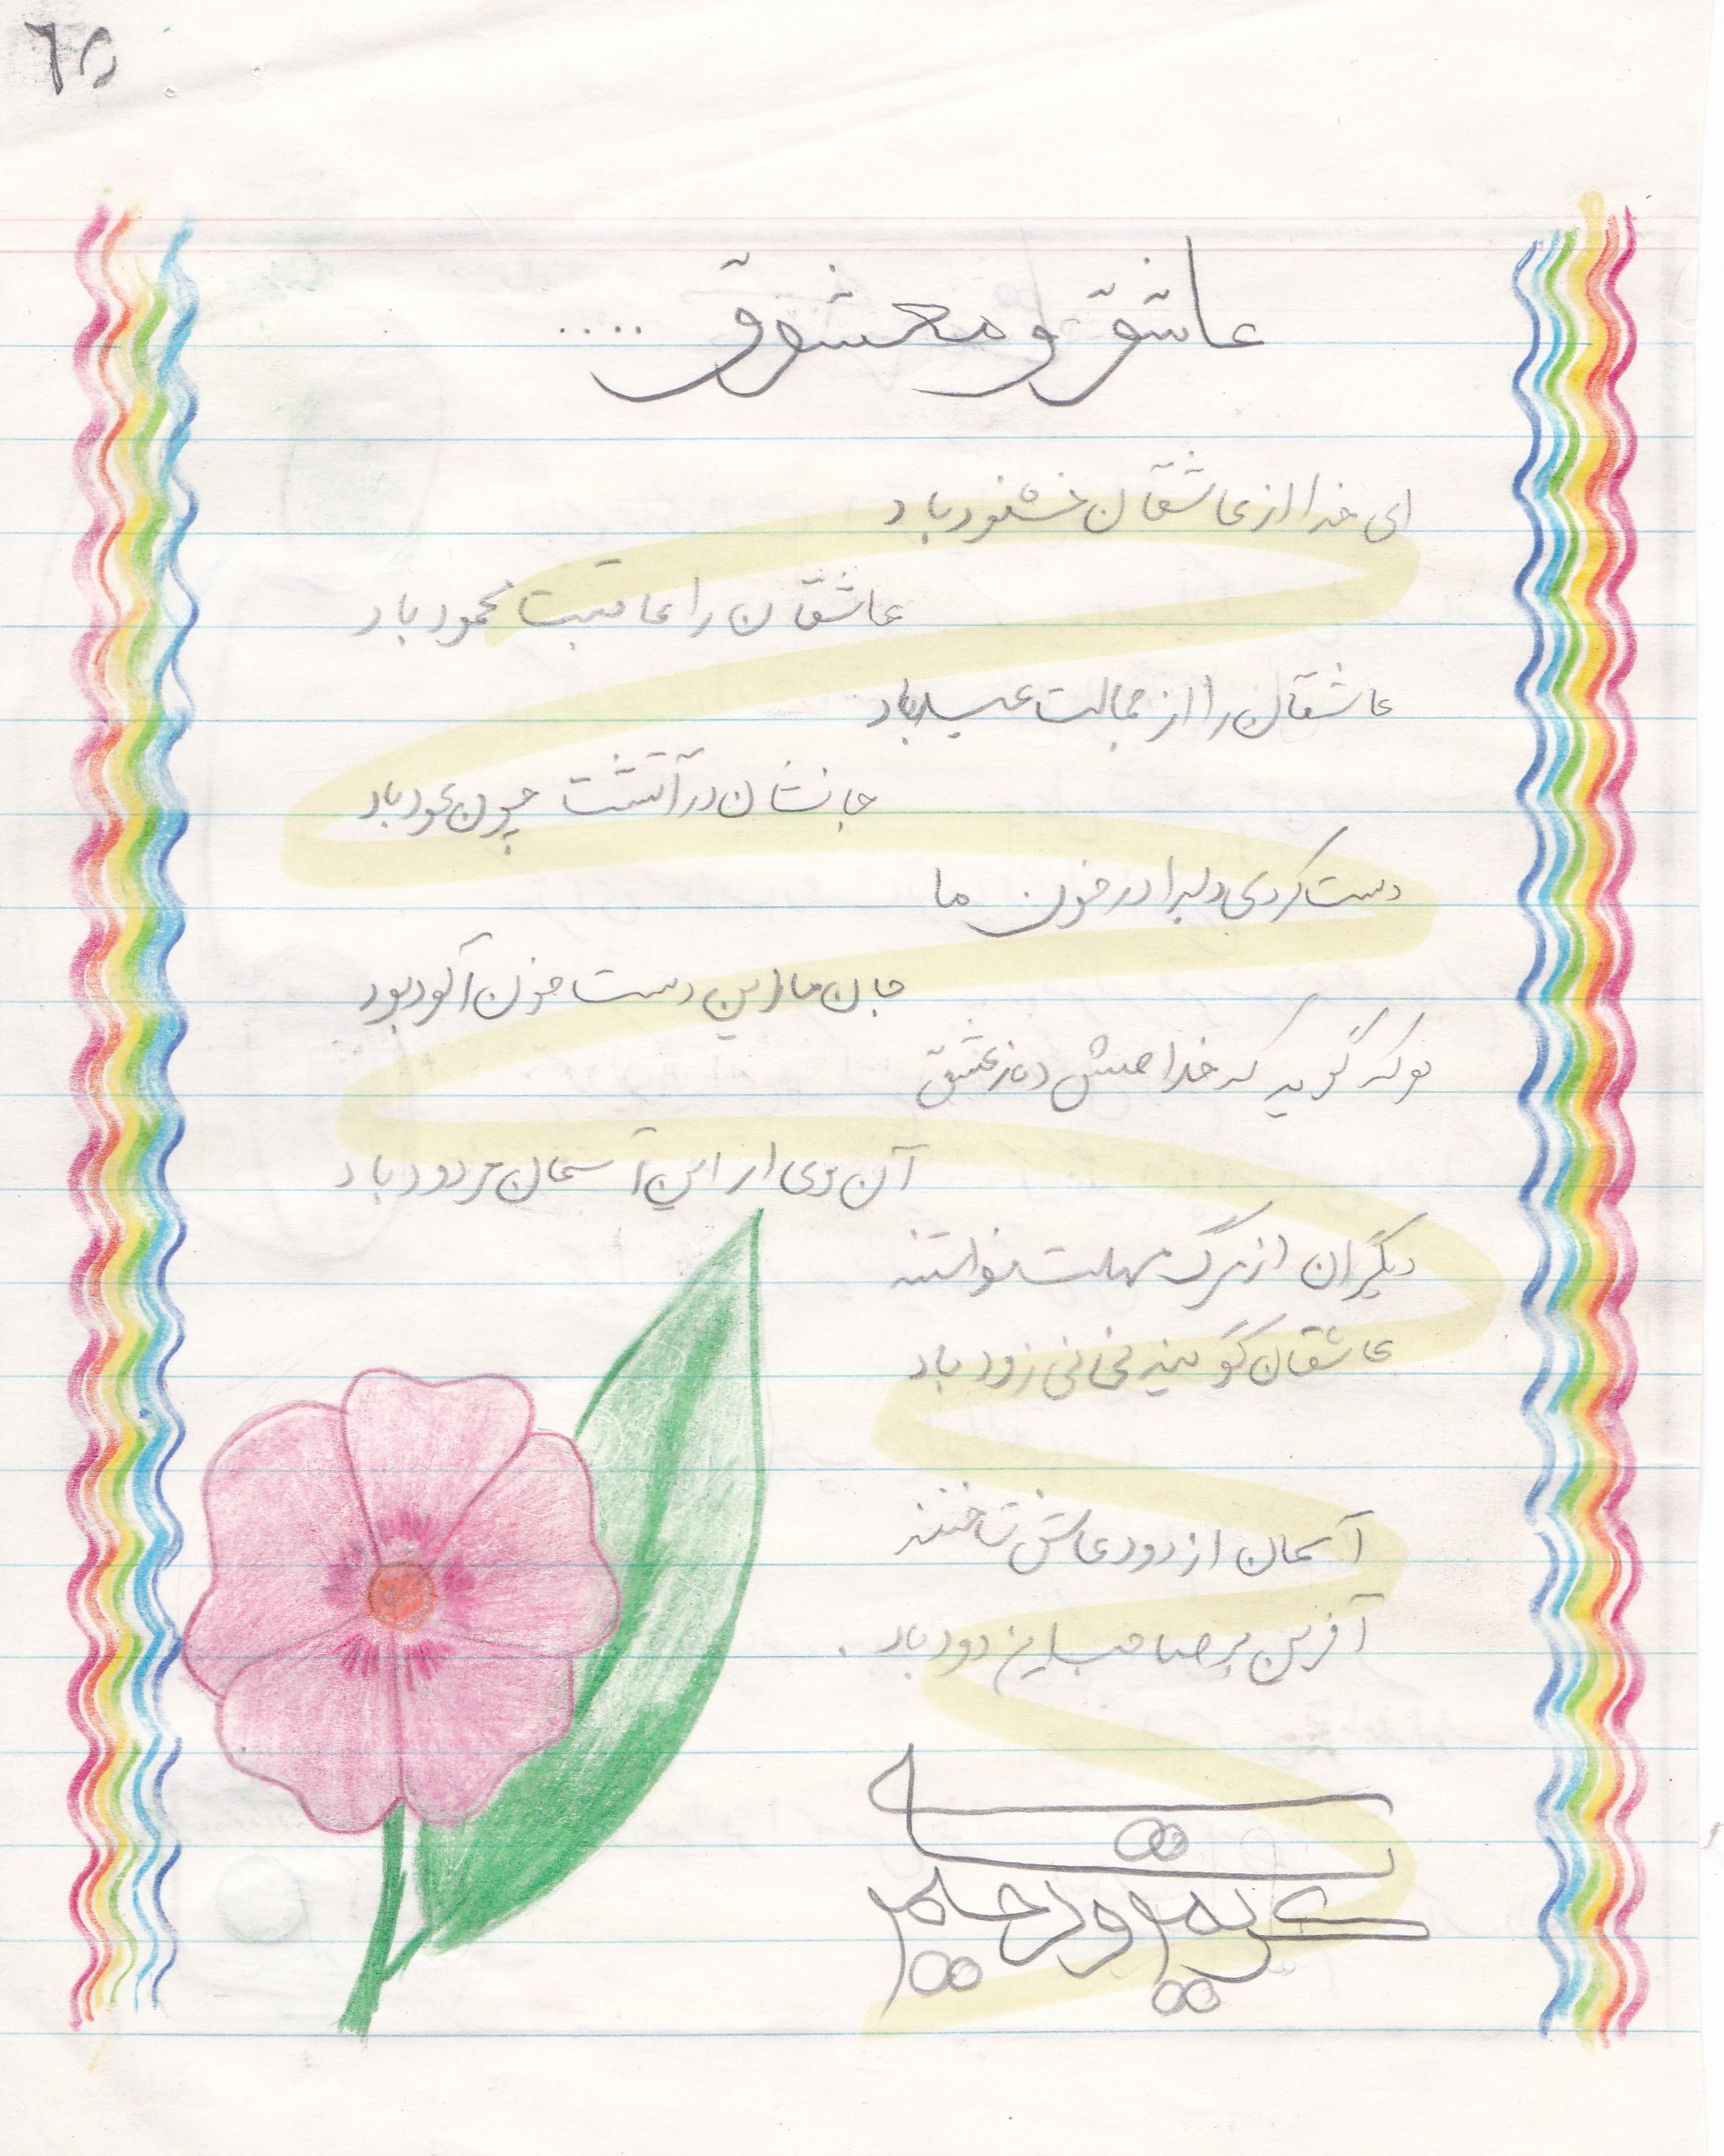 ۶۵
عاشق و معشوق ....
ای خدا از عاشقان خشنود باد
عاشقان را عاقبت محمود باد
عاشقان را از جمالت عید باد
جانشان در آتشت چون عود باد
دست کردی دلبرا در خون ما
جان ما زین دست خون آلود بود
هر که گوید که خلاصش ده ز عشق
آن دعی از این آسمان مردود باد
دیگران از مرگ مهلت خواستند
عاشقان گویند نی نی زود باد
آسمان از دود عاشق ساختند
آفرین بر صاحب این دود باد .